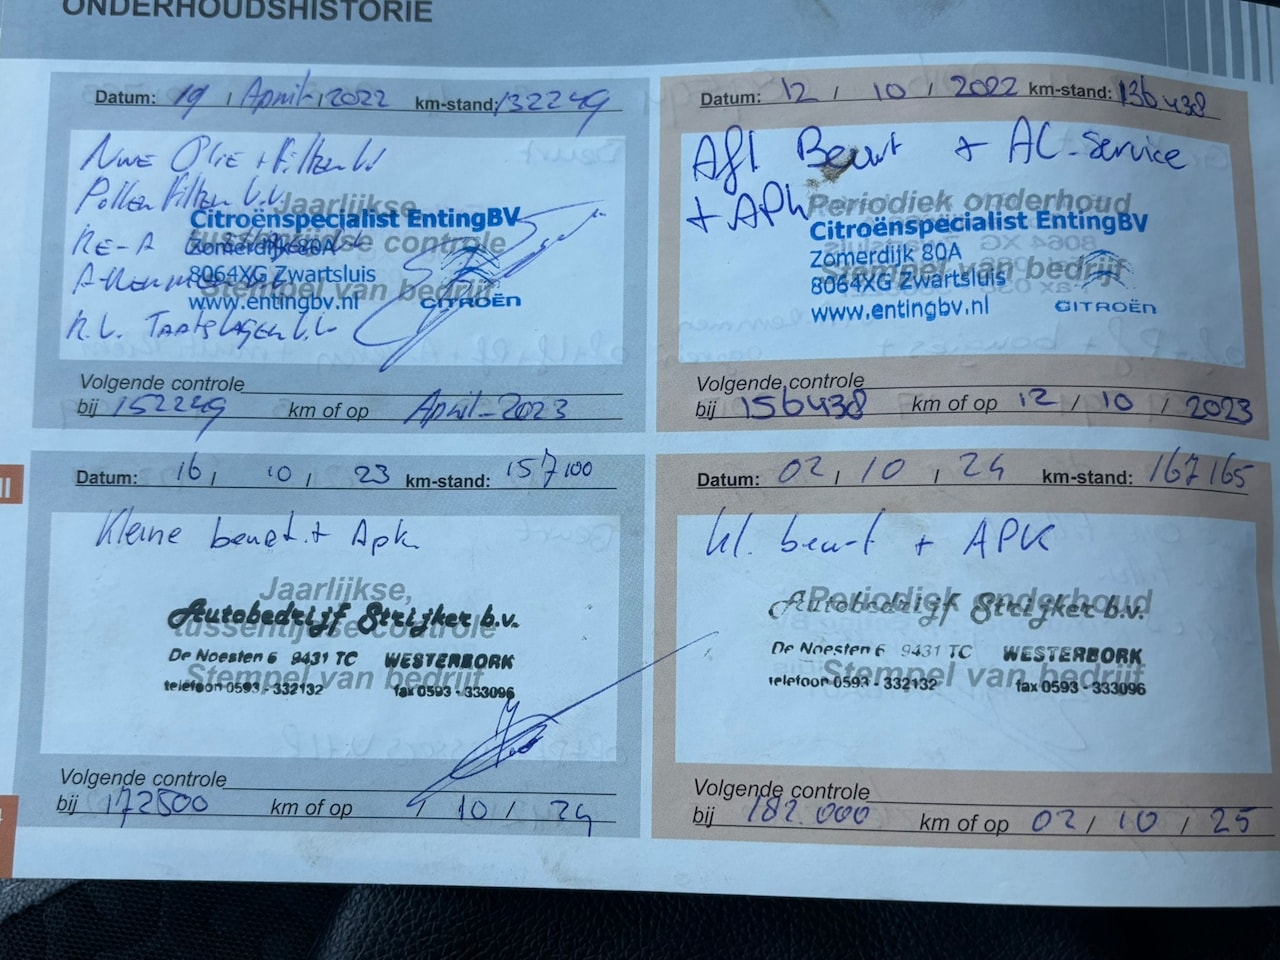 ONDERHOUDSHISTORIE
Datum: 19 / April / 2022 km-stand: 132249
Nwe Olie + Filter V.V
Pollenfilter V.V.
Jaarlijkse
Citroënspecialist EntingBV
Zomerdijk 80A
controle
8064XG Zwartsluis
Stempel van bedrijf
www.entingbv.nl
CITROËN
Volgende controle
bij 152249 km of op April-2023
Datum: 12 / 10 / 2022 km-stand: 136438
Afl Beurt + AC-Service
+ APK
Periodiek onderhoud
Citroënspecialist EntingBV
Zomerdijk 80A
Stempel van bedrijf
8064XG Zwartsluis
www.entingbv.nl
CITROËN
Volgende controle
bij 156438 km of op 12 / 10 / 2023
Datum: 16 / 10 / 23 km-stand: 157100
Kleine beurt + Apk
Jaarlijkse,
Autobedrijf Strijker b.v.
tussentijdse controle
De Noesten 6 9431 TC WESTERBORK
Stempel van bedrijf
telefoon 0593 - 332132 fax 0593 - 333096
Volgende controle
bij 172500 km of op / 10 / 24
Datum: 02 / 10 / 24 km-stand: 167165
kl. beurt + APK
Periodiek onderhoud
Autobedrijf Strijker b.v.
De Noesten 6 9431 TC WESTERBORK
Stempel van bedrijf
telefoon 0593 - 332132 fax 0593 - 333096
Volgende controle
bij 182.000 km of op 02 / 10 / 25